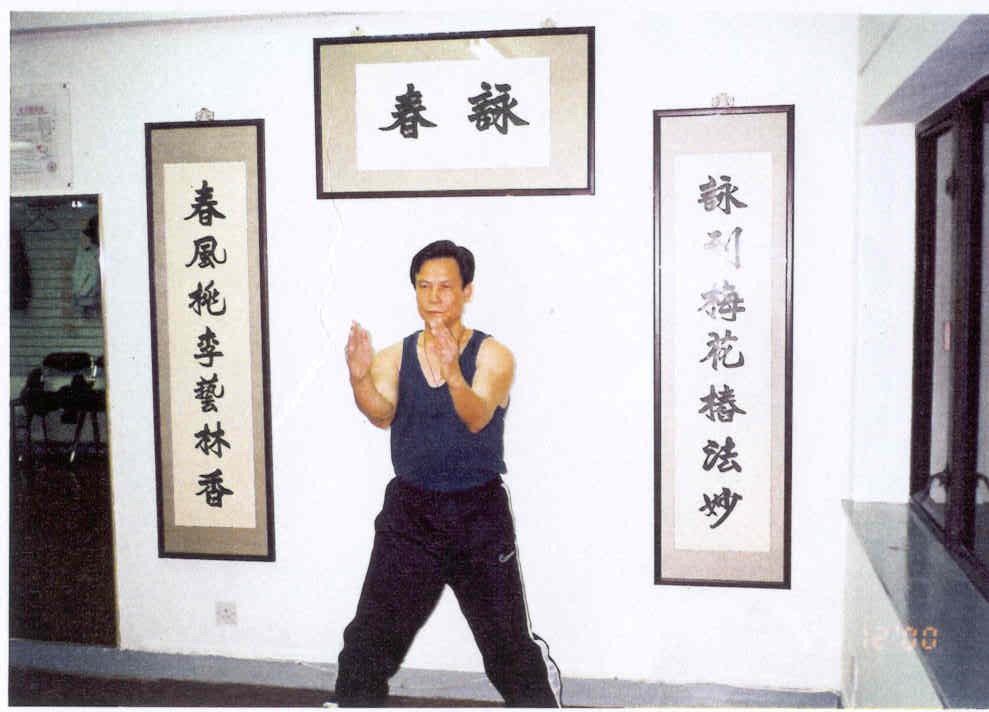 詠春
詠到梅花樁法妙
春風桃李藝林香
12 '00